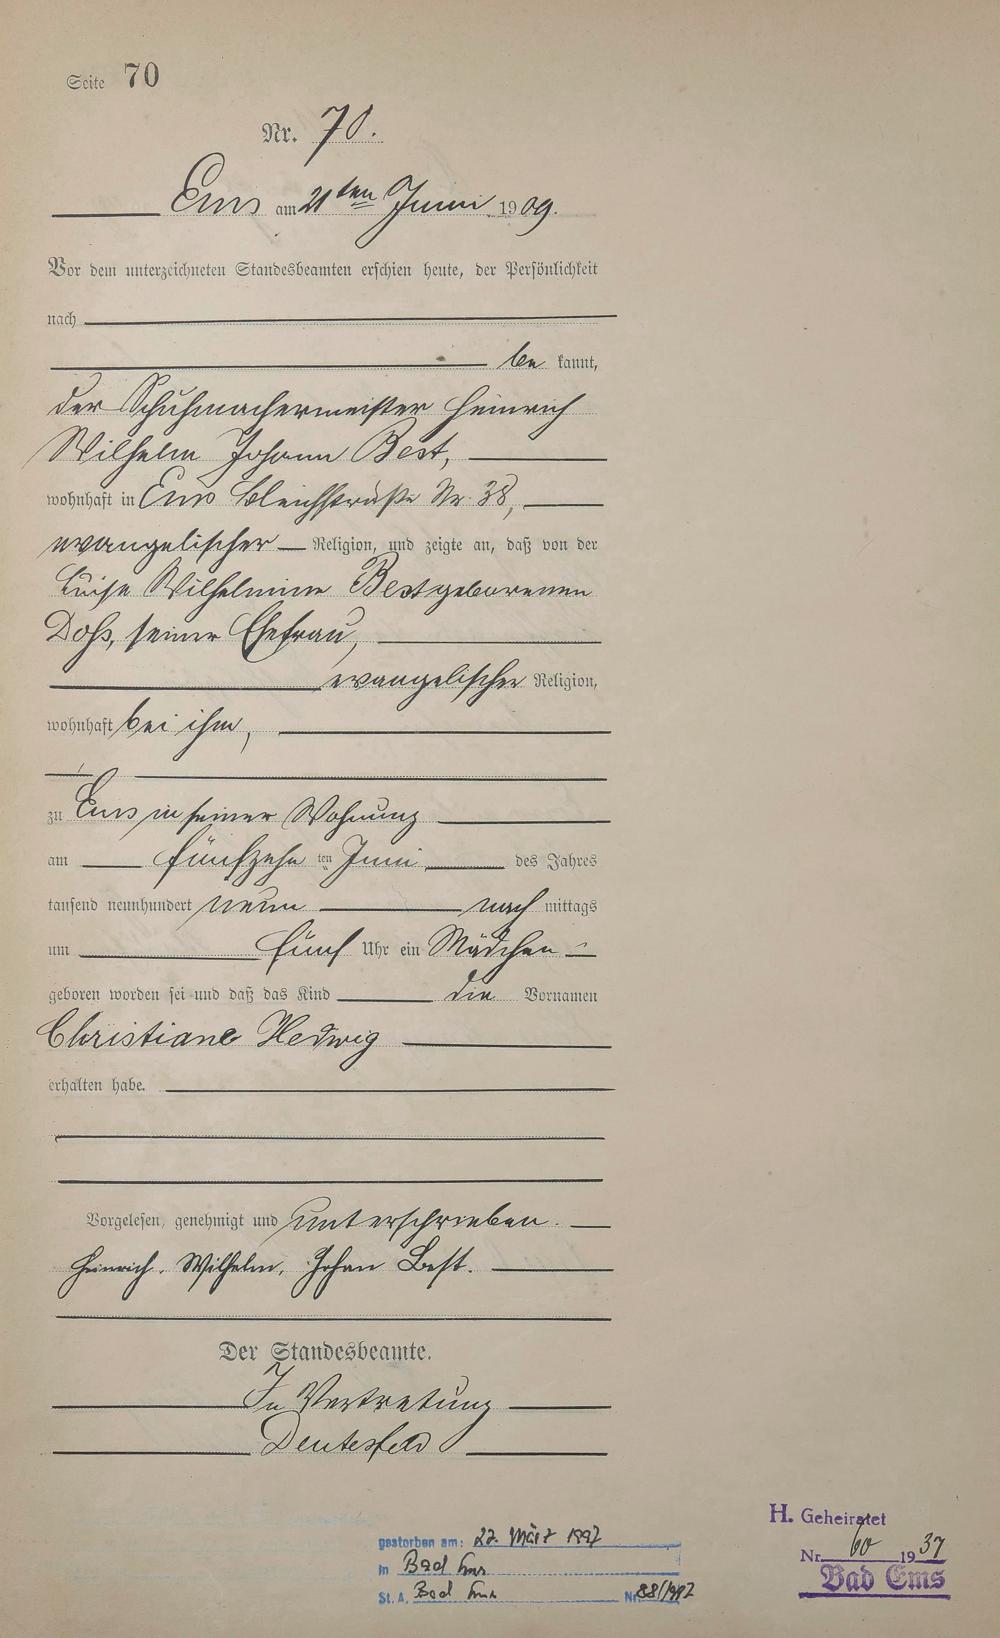 Seite 70
Nr. 70.
Ems am 21ten Juni 1909.
Vor dem unterzeichneten Standesbeamten erschien heute, der Persönlichkeit
nach
be kannt,
der Schuhmachermeister Heinrich
Wilhelm Johann Best,
wohnhaft in Ems Bleichstraße Nr. 38,
evangelischer Religion, und zeigte an, daß von der
Luise Wilhelmine Best geborenen
Doß, seiner Ehefrau,
evangelischer Religion,
wohnhaft bei ihm,
zu Ems in seiner Wohnung
am fünfzehn ten Juni des Jahres
tausend neunhundert neun nach mittags
um fünf Uhr ein Mädchen
geboren worden sei und daß das Kind die Vornamen
Christiane Hedwig
erhalten habe.
Vorgelesen, genehmigt und unterschrieben.
Heinrich. Wilhelm. Johan Best.
Der Standesbeamte.
In Vertretung
H. Geheiratet
Nr. 60 1937
Bad Ems
gestorben am: 22. März 1997
in Bad Ems
St. A. Bad Ems Nr. 88/1997